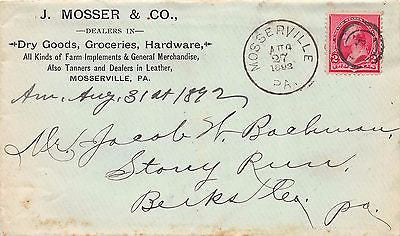 J. MOSSER & CO.,
DEALERS IN
Dry Goods, Groceries, Hardware,
All Kinds of Farm Implements & General Merchandise,
Also Tanners and Dealers in Leather,
MOSSERVILLE, PA.
MOSSERVILLE
AUG
27
1892
PA.
2 2
Am. Aug. 31 at 1892
Mr Jacob W. Bachman
Stony Run,
Berks Co. Pa.